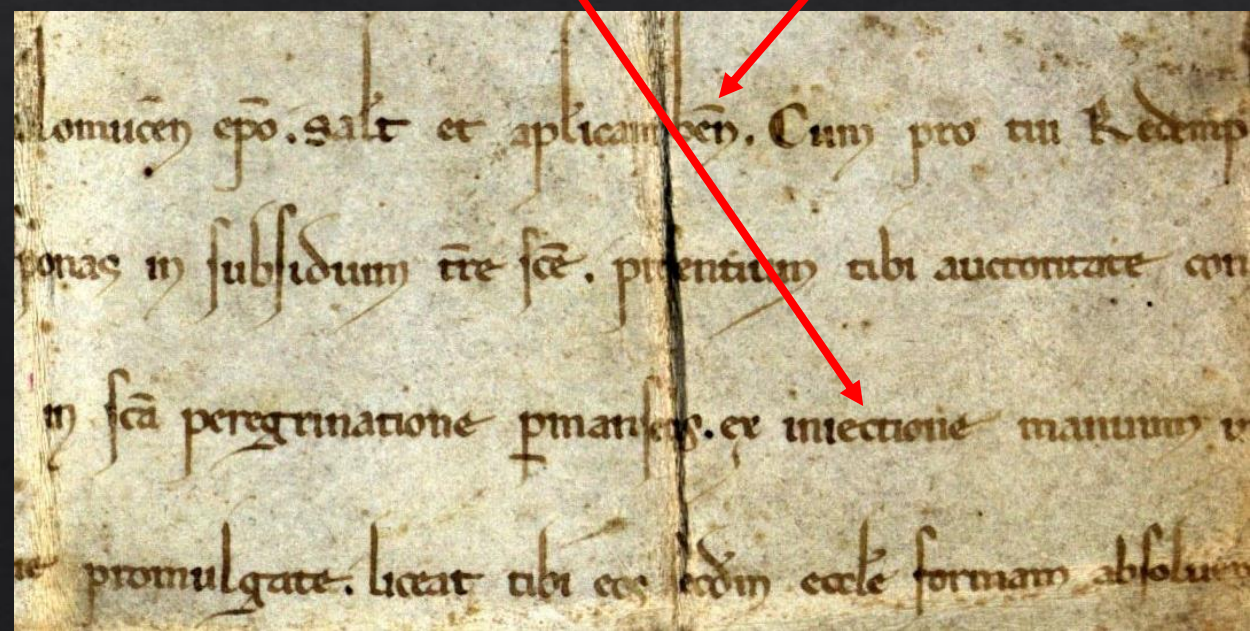 lomucen̄ ep̄o. salt̄ et aplicam ben̄. Cum pro tui Redemp
ponas in subsidium tr̄e sc̄e. presentium tibi auctoritate con
in sc̄a peregrinatione ꝑmanseris. ex iniectione manuum
promulgate. liceat tibi eos scd̄m eccl̄e formam absoluer